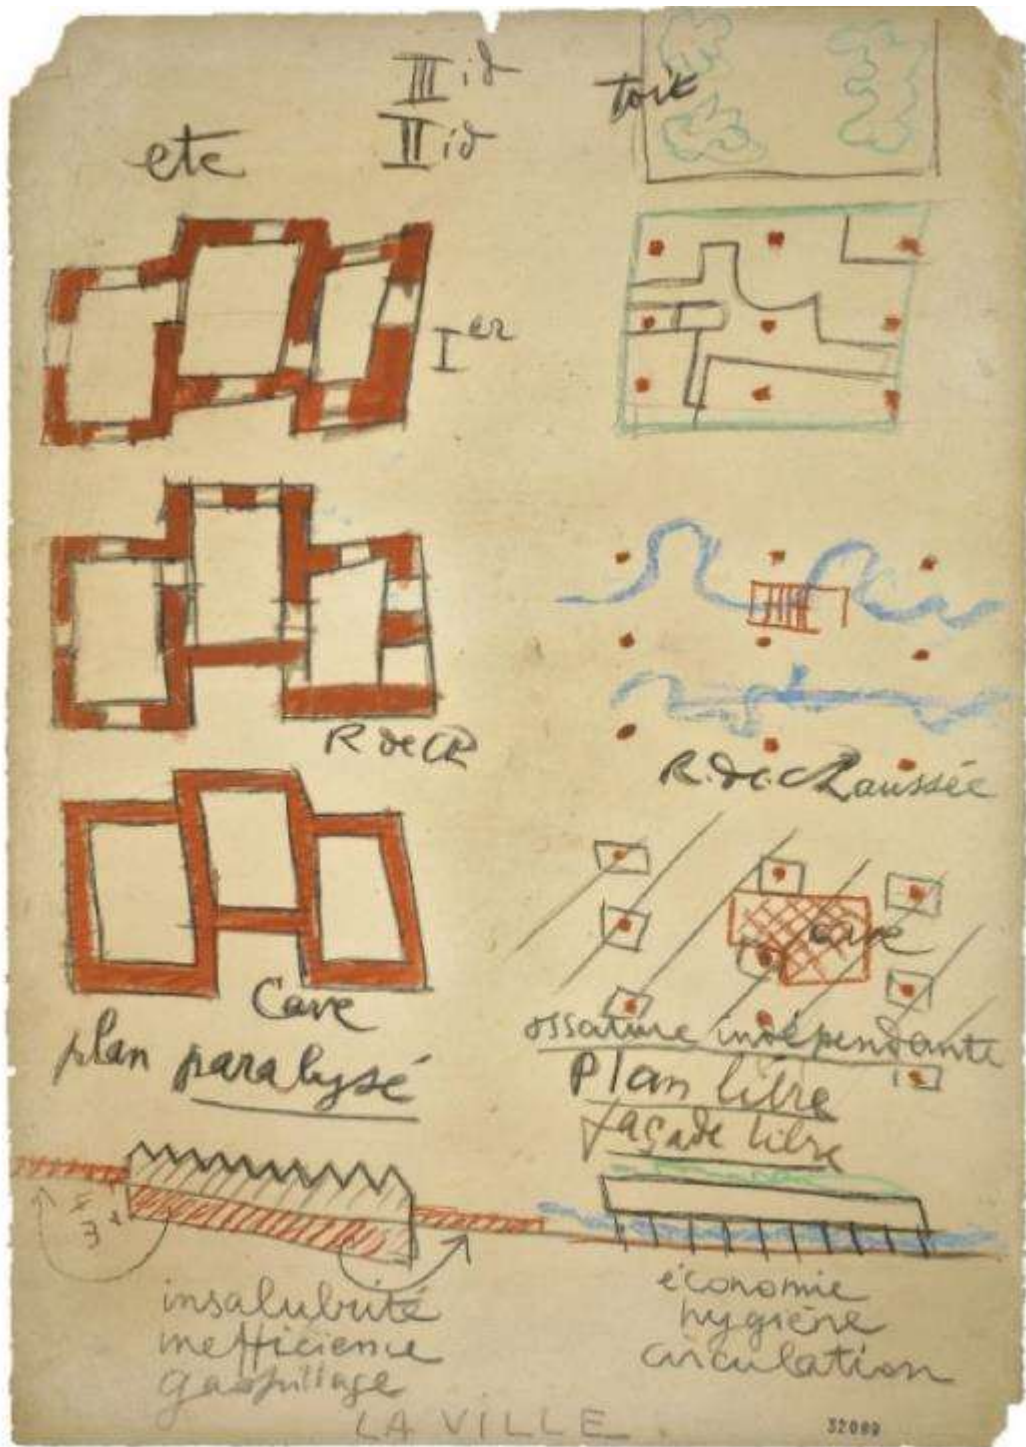 III id
II id
toit
etc
Ier
R de Ch
R. de. chaussée
cave
Cave
ossature indépendante
plan paralysé
Plan libre
façade libre
insalubrité
inefficience
gaspillage
économie
hygiène
circulation
LA VILLE.
32089